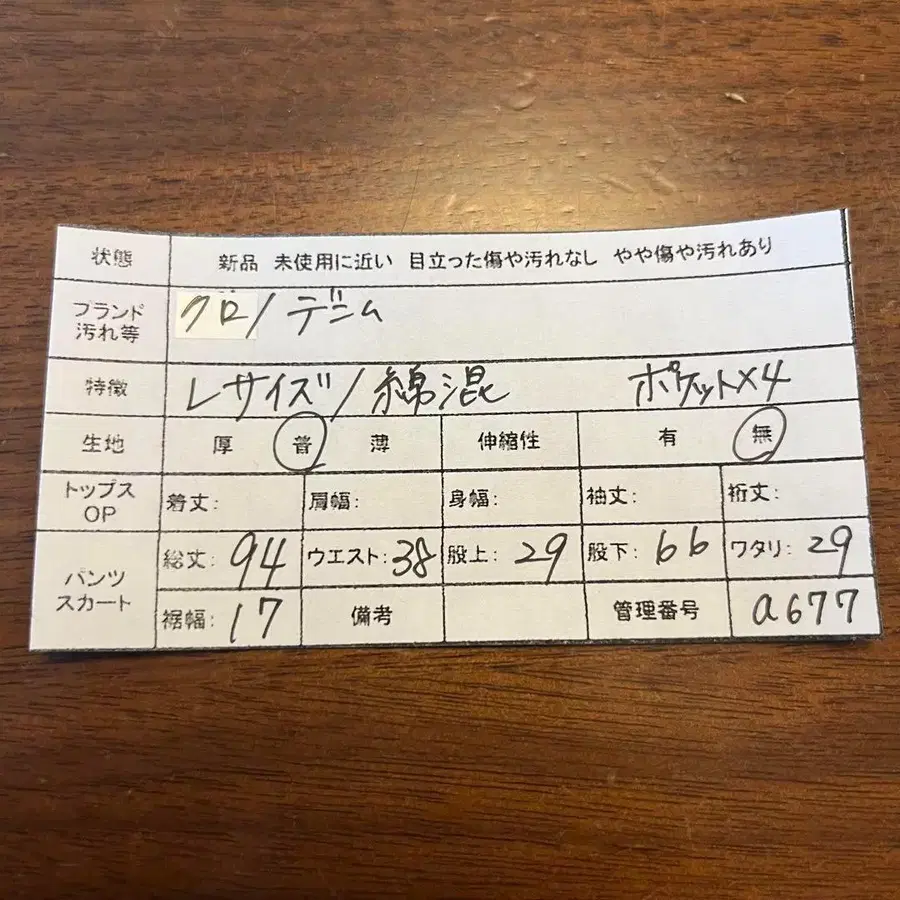 状態 新品 未使用に近い 目立った傷や汚れなし やや傷や汚れあり
ブランド 汚れ等 クロ/デニム
特徴 Lサイズ/綿混 ポケット×4
生地 厚 普 薄 伸縮性 有 無
トップス OP 着丈: 肩幅: 身幅: 袖丈: 裄丈:
パンツ スカート 総丈: 94 ウエスト: 38 股上: 29 股下: 66 ワタリ: 29
裾幅: 17 備考 管理番号 a677